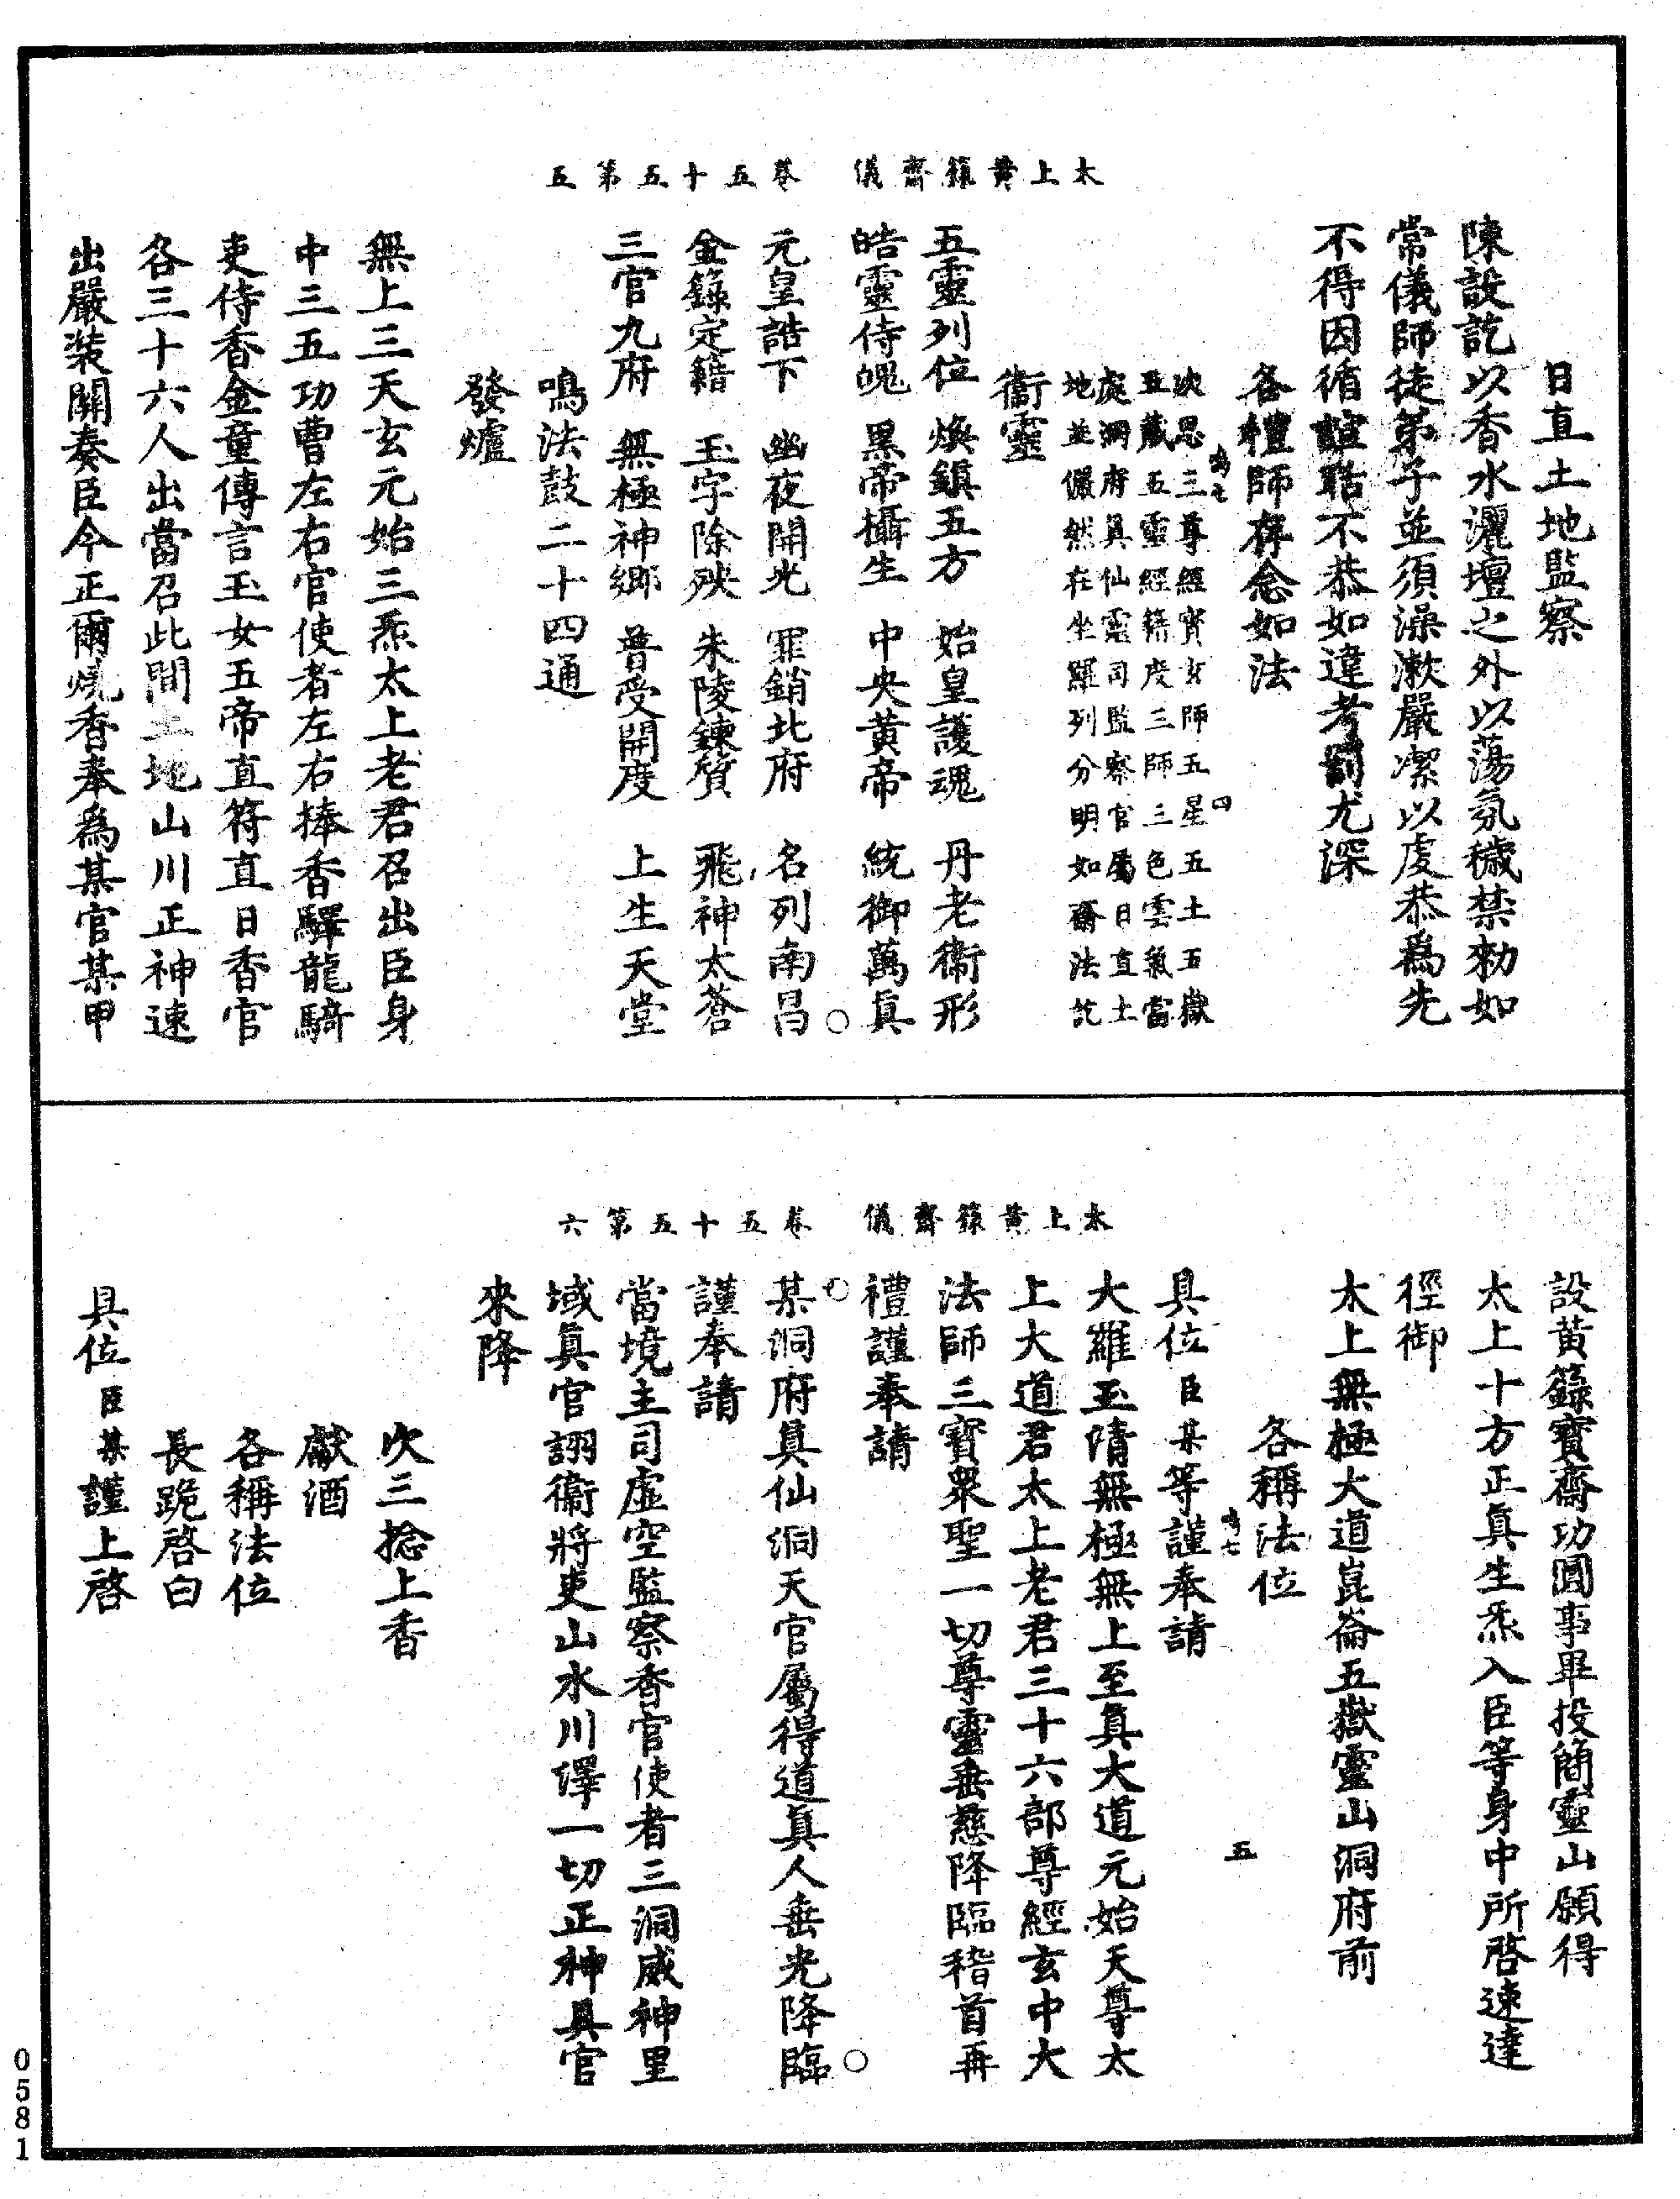 太上黃籙齋儀　卷五十五第五
日直土地監察
陳設訖以香水灑壇之外以蕩氛穢禁勑如
常儀師徒第子並須澡漱嚴潔以虔恭爲先
不得因循諠聒不恭如違考罰尤深
各禮師存念如法
鳴七　四
次思三尊經寶玄師五星五土五嶽
五藏五靈經籍度三師三色雲氣當
處洞府真仙靈司監察官屬日直土
地並儼然在坐羅列分明如齋法訖
衞靈
五靈列位　煥鎮五方　始皇護魂　丹老衞形
皓靈侍魄　黑帝攝生　中央黃帝　統御萬眞
元皇誥下　幽夜開光　罪銷北府　名列南昌
金籙定籍　玉字除殃　朱陵鍊質　飛神太蒼
三官九府　無極神鄉　普受開度　上生天堂
鳴法鼓二十四通
發爐
無上三天玄元始三炁太上老君召出臣身
中三五功曹左右官使者左右捧香驛龍騎
吏侍香金童傳言玉女五帝直符直日香官
各三十六人出當召此間土地山川正神速
出嚴裝關奏臣今正爾燒香奉爲某官某甲
太上黃籙齋儀　卷五十五第六
設黃籙寶齋功圓事畢投簡靈山願得
太上十方正真生炁入臣等身中所啓速達
徑御
太上無極大道崑崙五嶽靈山洞府前
各稱法位
鳴七　五
具位臣某等謹奉請
大羅玉清無極無上至真大道元始天尊太
上大道君太上老君三十六部尊經玄中大
法師三寶衆聖一切尊靈垂慈降臨稽首再
禮謹奉請
某洞府真仙洞天官屬得道眞人垂光降臨
謹奉請
當境主司虛空監察香官使者三洞威神里
域真官詡衞將吏山水川澤一切正神具官
來降
次三捻上香
獻酒
各稱法位
長跪啓白
具位臣某謹上啓
0581